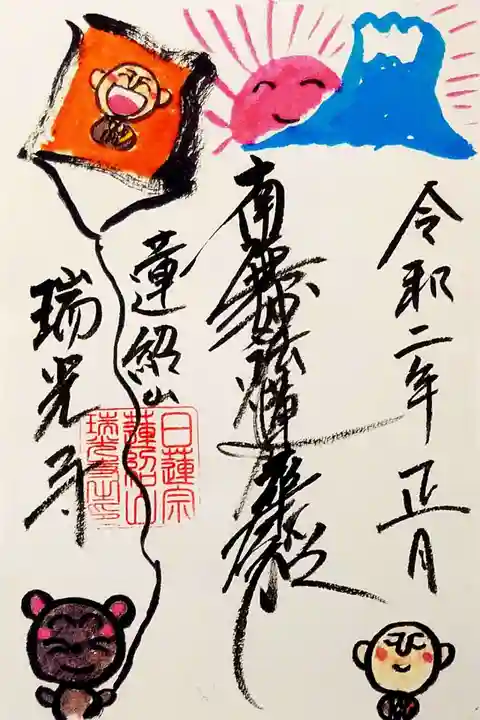 令和二年 正月
南無妙法蓮華経
蓮紹山
瑞光寺
日蓮宗
蓮紹山
瑞光寺之印